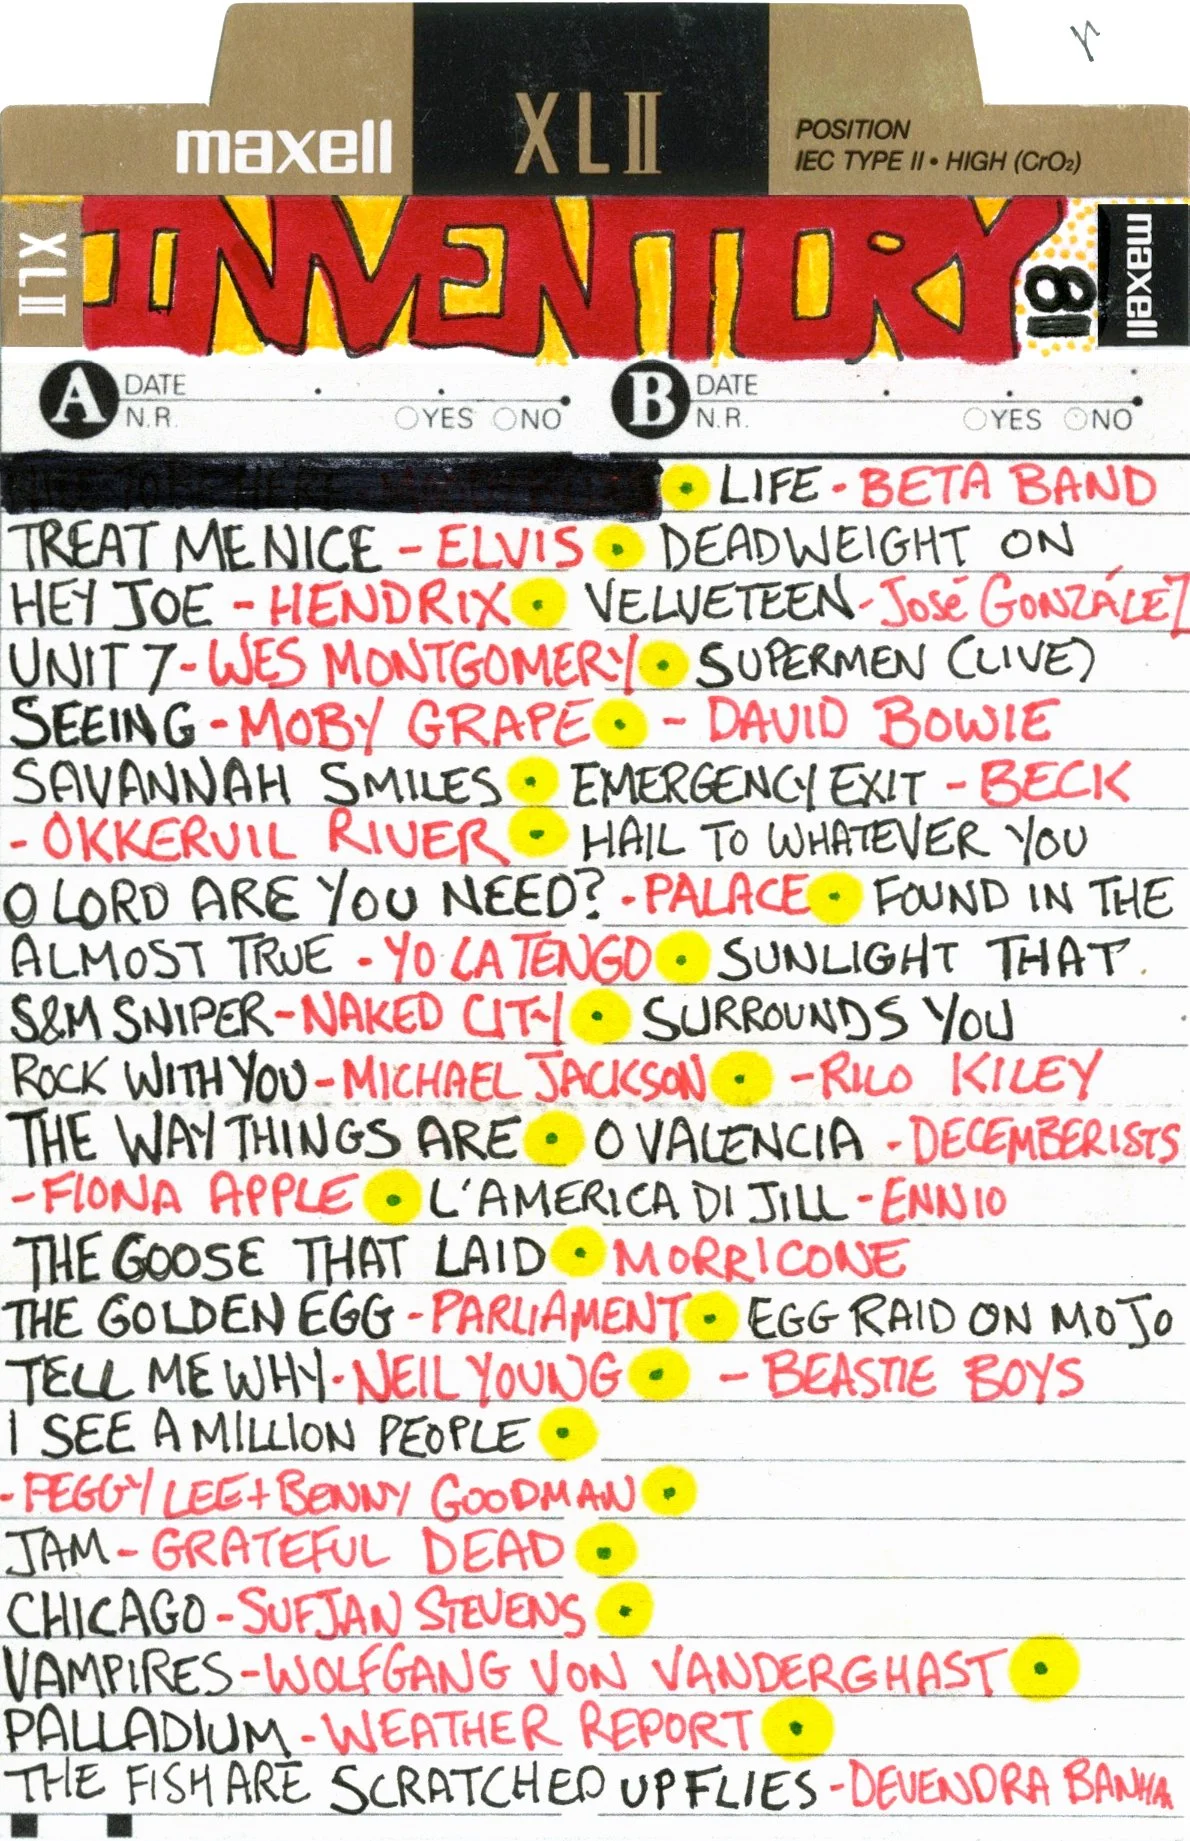 maxell XLII POSITION
IEC TYPE II • HIGH (CrO₂)
XLII INVENTORY 81 maxell
A DATE B DATE
N.R. YES NO N.R. YES NO
LIFE - BETA BAND
TREAT ME NICE - ELVIS DEADWEIGHT ON
HEY JOE - HENDRIX VELVETEEN - José GONZÁLEZ
UNIT 7 - WES MONTGOMERY SUPERMEN (LIVE)
SEEING - MOBY GRAPE - DAVID BOWIE
SAVANNAH SMILES EMERGENCY EXIT - BECK
- OKKERVIL RIVER HAIL TO WHATEVER YOU
O LORD ARE YOU NEED? - PALACE FOUND IN THE
ALMOST TRUE - YO LA TENGO SUNLIGHT THAT
S&M SNIPER - NAKED CITY SURROUNDS YOU
ROCK WITH YOU - MICHAEL JACKSON - RILO KILEY
THE WAY THINGS ARE O VALENCIA - DECEMBERISTS
- FIONA APPLE L'AMERICA DI JILL - ENNIO
THE GOOSE THAT LAID MORRICONE
THE GOLDEN EGG - PARLIAMENT EGG RAID ON MOJO
TELL ME WHY - NEIL YOUNG - BEASTIE BOYS
I SEE A MILLION PEOPLE
- PEGGY LEE + BENNY GOODMAN
JAM - GRATEFUL DEAD
CHICAGO - SUFJAN STEVENS
VAMPIRES - WOLFGANG VON VANDERGHAST
PALLADIUM - WEATHER REPORT
THE FISH ARE SCRATCHED UP FLIES - DEVENDRA BANHA